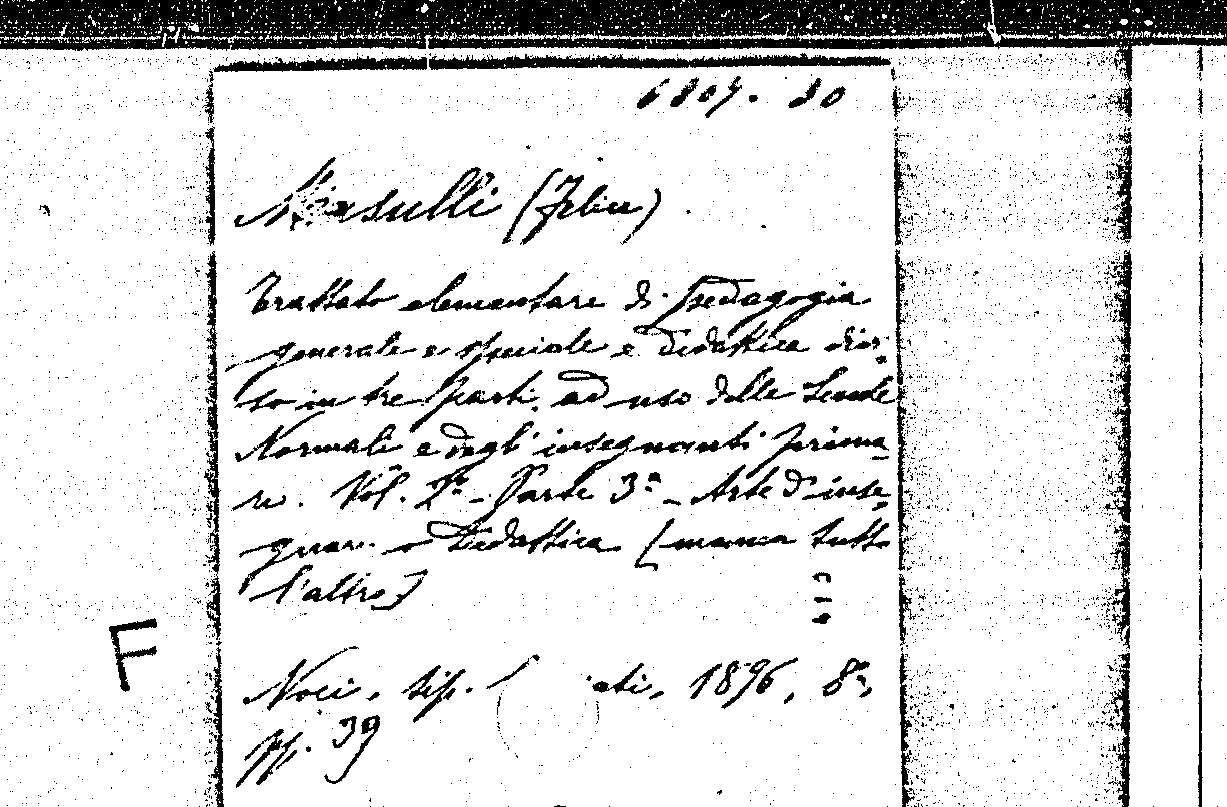 6807. 80
Masulli (Felice)
Trattato elementare di Pedagogia
generale e speciale e Didattica divi-
so in tre parti, ad uso delle Scuole
Normali e degli insegnanti prima-
ri. Vol. 2º - Parte 3ª - Arte d'inse-
gnare o Didattica [manca tutto
l'altro]
F
Noci, tip. ati, 1896, 8º,
pp. 39